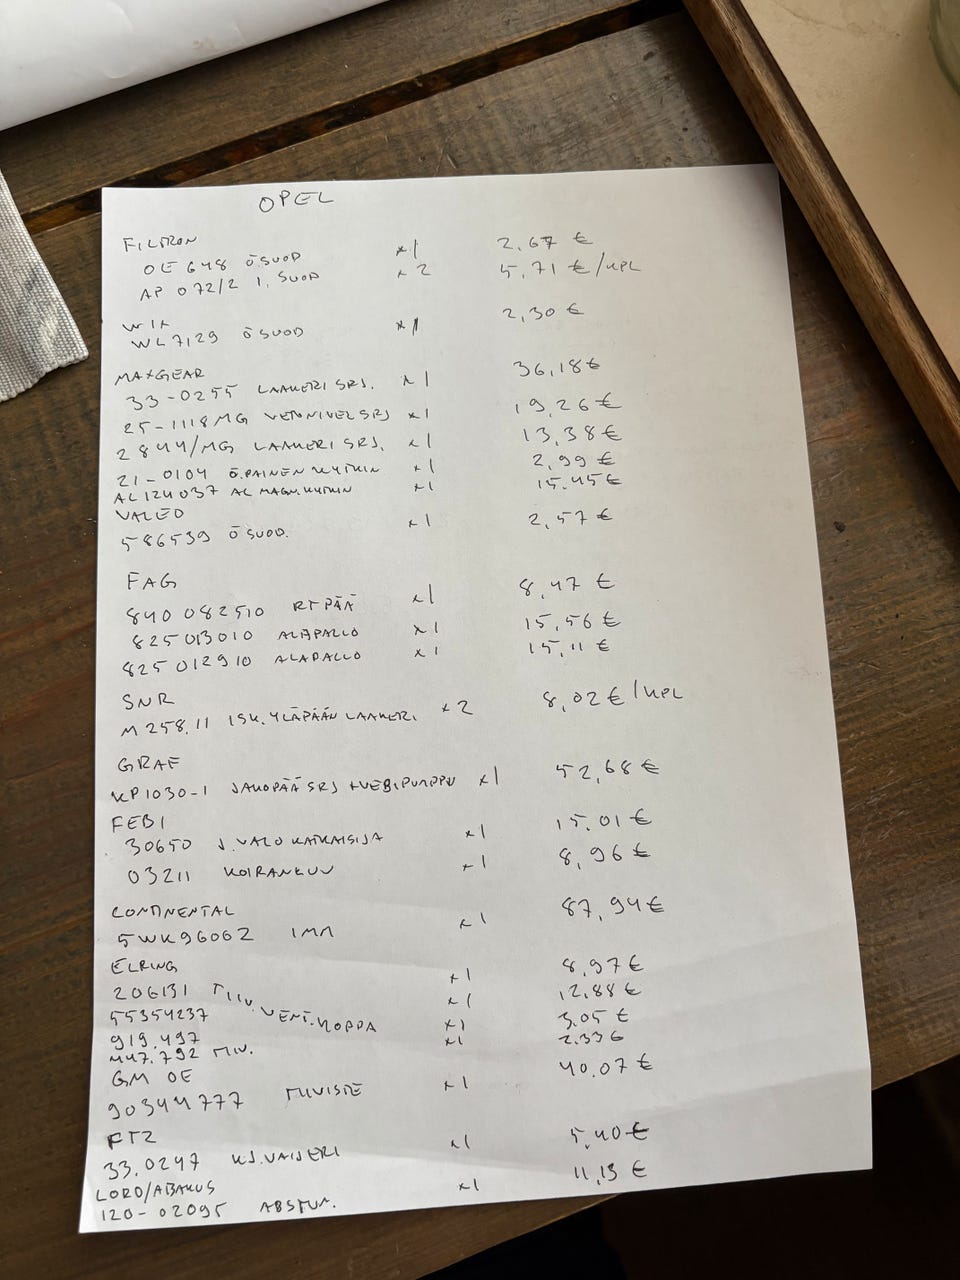 OPEL
FILTRON
OE 648 ÖSUOD x1 2,67 €
AP 072/2 I. SUOD x2 5,71 €/KPL
WIX
WL7129 ÖSUOD x1 2,30 €
MAXGEAR
33-0255 LAAKERI SRJ. x1 36,18€
25-1118MG VETONIVELSRJ x1 19,26 €
2844/MG LAAKERI SRJ. x1 13,38€
21-0104 Ö.PAINEN KYTKIN x1 2,99 €
AC124037 AC MAGN.KYTKIN x1 15.45€
VALEO
586539 ÖSUOD. x1 2,57 €
FAG
840 0825 10 RT PÄÄ x1 8,47 €
825013010 ALAPALLO x1 15,56€
825 0129 10 ALAPALLO x1 15,11 €
SNR
M258.11 ISK.YLÄPÄÄN LAAKERI x2 8,02€/KPL
GRAF
KP1030-1 JAKOPÄÄ SRJ +VESIPUMPPU x1 52,68€
FEBI
30650 J.VALO KATKAISIJA x1 15.01€
03211 KOIRANLUU x1 8,96€
CONTINENTAL
5WK96062 IMM x1 87,94€
ELRING
206131 TIIV. x1 8,97€
55354237 VENT.KOPPA x1 12,88€
919.497 x1 3,05 €
447.792 TIIV. x1 2.33€
GM OE
90344777 TIIVISTE x1 40.07€
FTZ
33.0247 KJ.VAIJERI x1 5,40€
LORO/ABAKUS
120-02095 x1 11,13 €